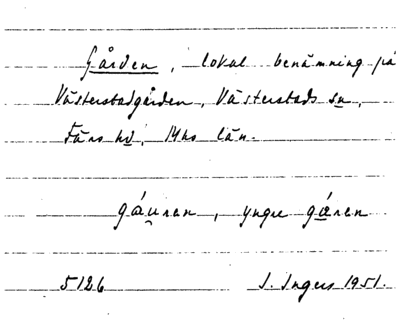 Gården, lokal benämning på
Västerstadgården, Västerstads sn,
Färs hd, Mhs län.
gáu̯ren, yngre gǽren
5126 I. Ingers 1951.